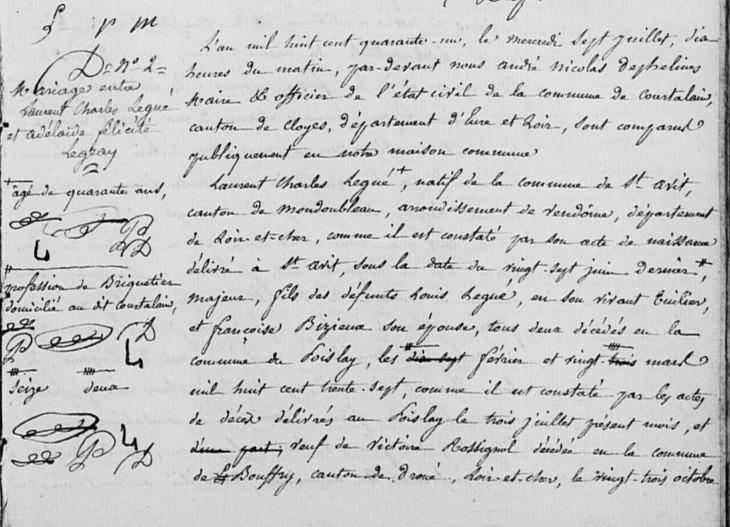 De No 2
Mariage entre
Laurent Charles Legué
et adélaïde félicité
Legeay
+ agé de quarante ans,
profession de Briquetier
domicilié au dit courtalain,
seize deux
L'an mil huit cent quarante-un, le mercredi sept juillet, dix
heures du matin, par-devant nous andré nicolas
Maire & officier de l'état civil de la commune de Courtalain,
canton de Cloyes, département d'Eure et Loir, sont comparus
publiquement en notre maison commune
Laurent Charles Legué+, natif de la commune de St avit,
canton de Mondoubleau, arrondissement de Vendôme, département
de Loir-et-cher, comme il est constaté par son acte de naissance
délivré à St avit, sous la date du vingt-sept juin dernier#,
majeur, fils des défunts Louis Legué, en son vivant tuilier,
et françoise Bizieux son épouse, tous deux décédés en la
commune du Poislay, les dix sept février et vingt-trois mars
mil huit cent trente-sept, comme il est constaté par les actes
de décès délivrés au Poislay le trois juillet présent mois, et
d'une part, veuf de Victoire Rossignol décédée en la commune
de Bouffry, canton de Droué, Loir-et-cher, le vingt-trois octobre